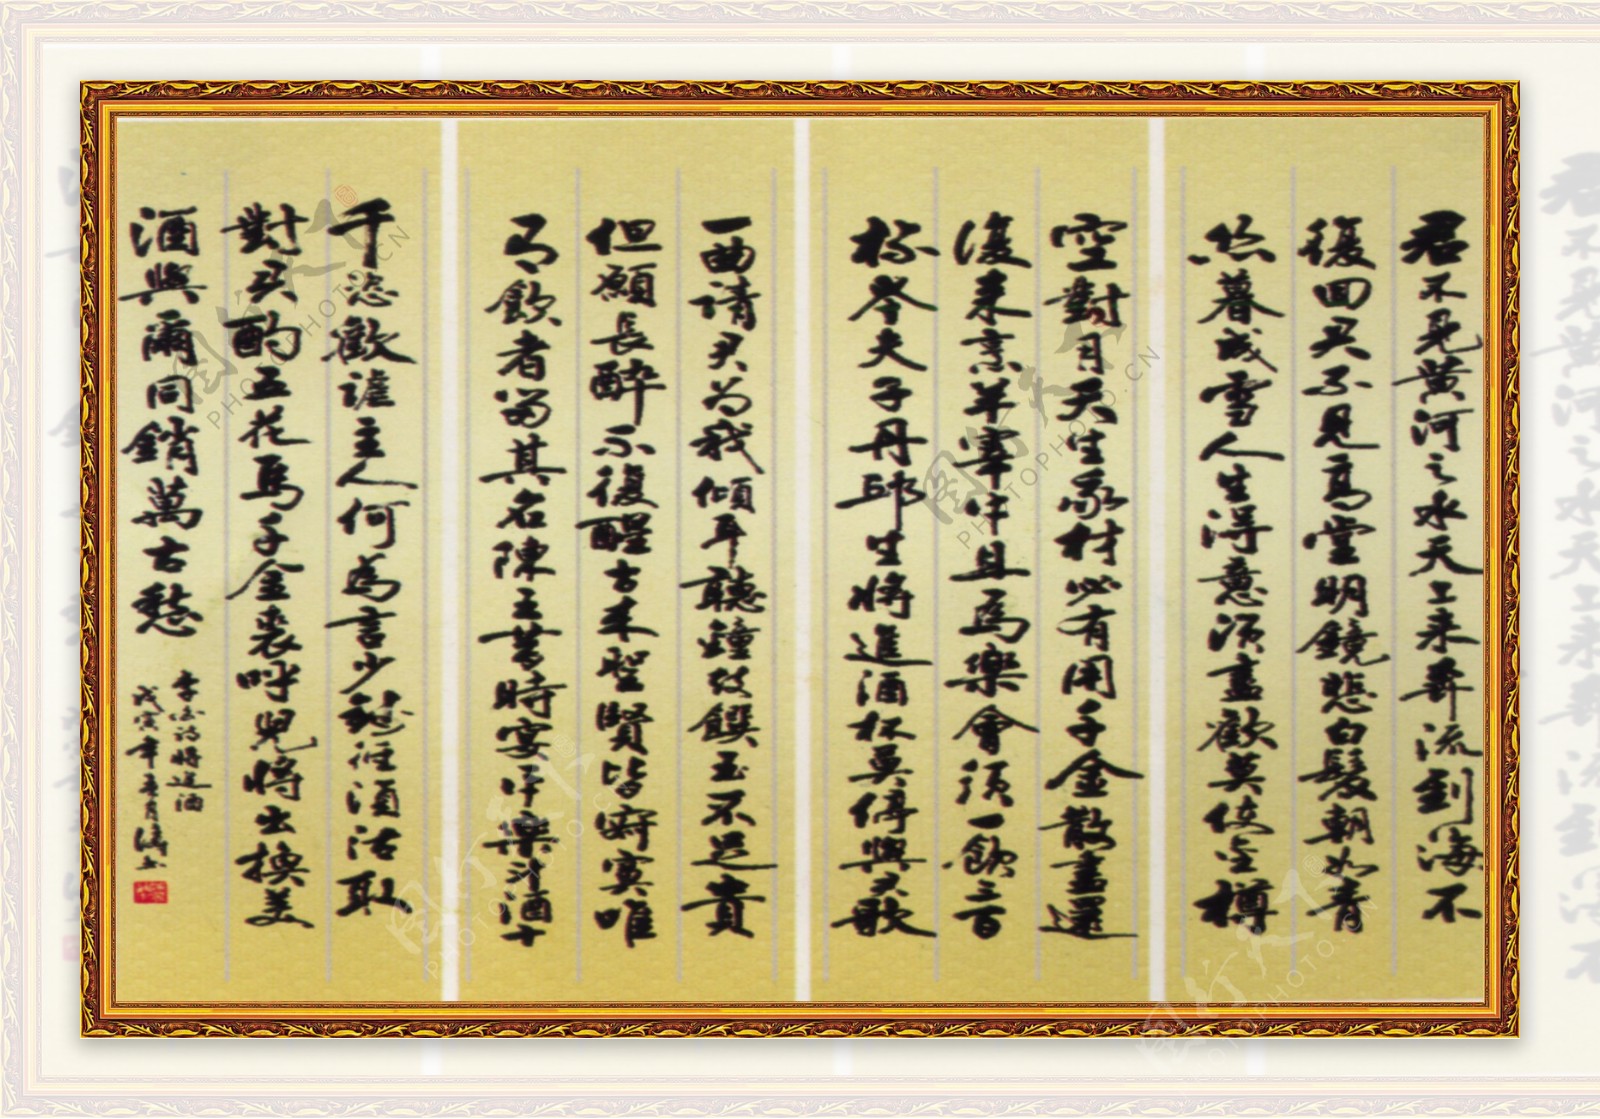 君不見黃河之水天上來奔流到海不
復回君不見高堂明鏡悲白髮朝如青
絲暮成雪人生得意須盡歡莫使金樽
空對月天生我材必有用千金散盡還
復來烹羊宰牛且為樂會須一飲三百
杯岑夫子丹邱生將進酒杯莫停與君歌
一曲請君為我傾耳聽鐘鼓饌玉不足貴
但願長醉不復醒古來聖賢皆寂寞唯
有飲者留其名陳王昔時宴平樂斗酒十
千恣歡謔主人何為言少錢徑須沽取
對君酌五花馬千金裘呼兒將出換美
酒與爾同銷萬古愁
李白詩將進酒
戊寅年春月濤書
图行天下
PHOTOPHOTO.CN